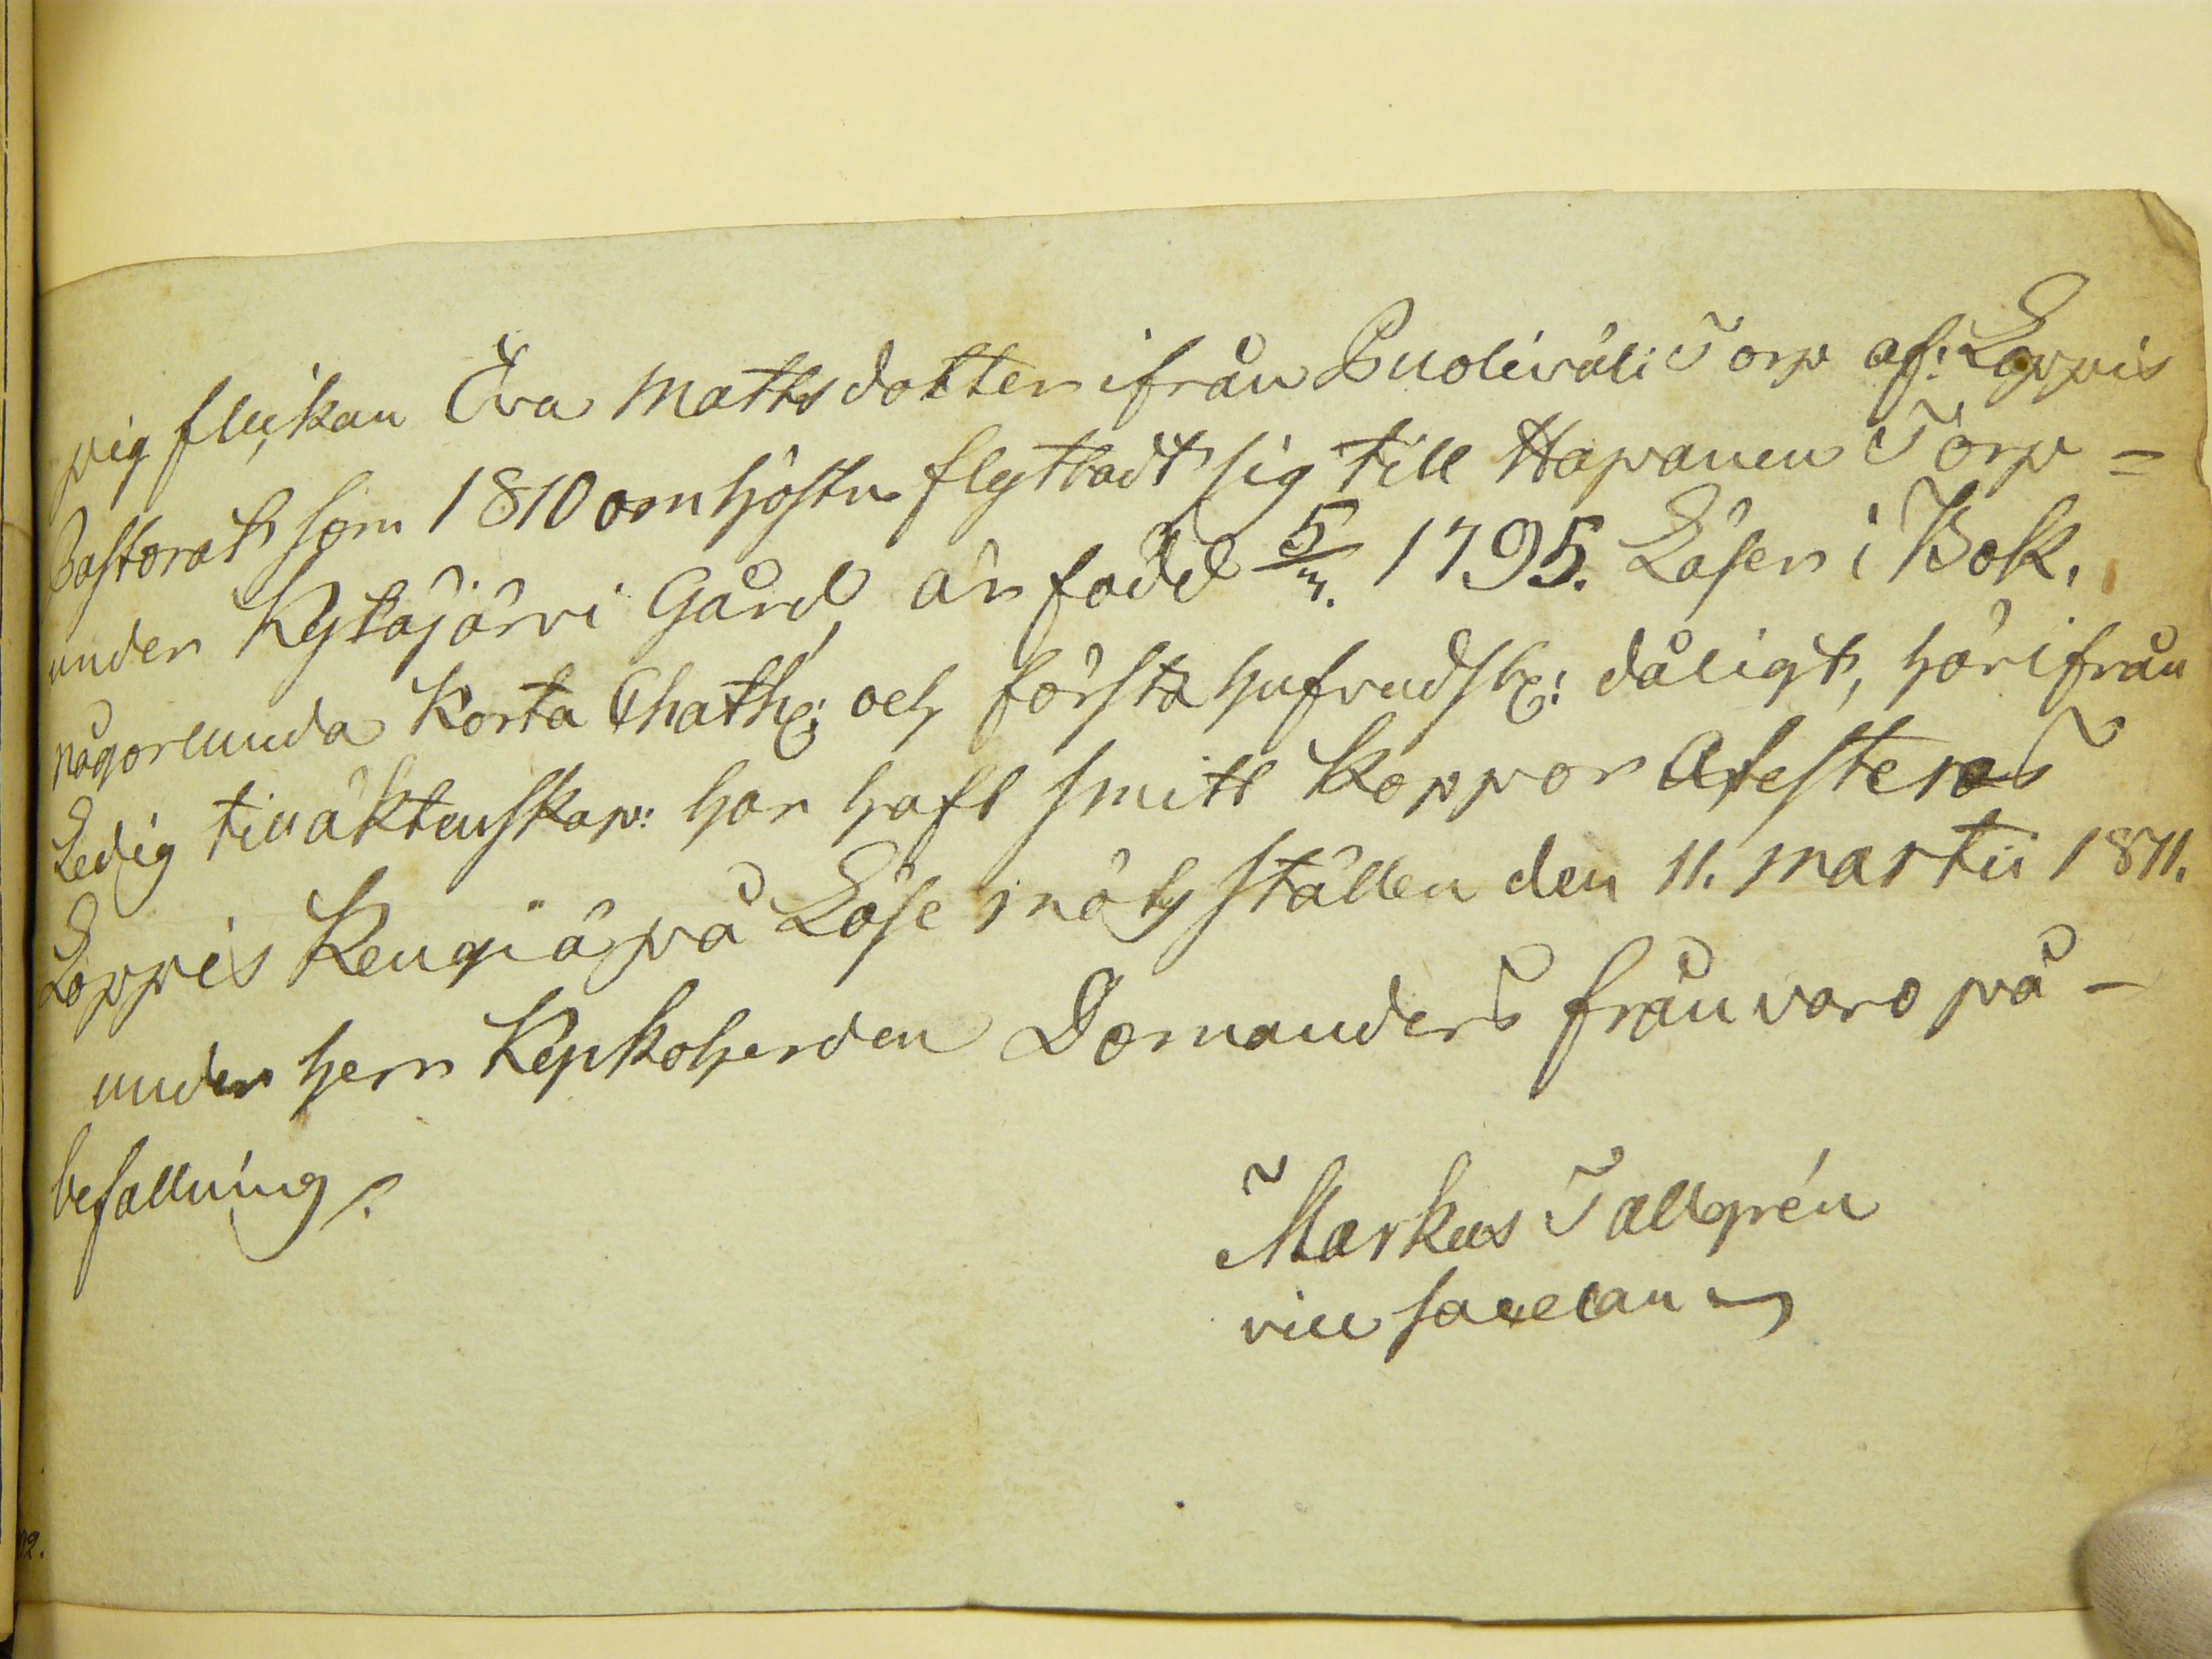 pig flickan Eva Mathsdotter ifrån Puoliväli Torp af: Loppis
Pastorat som 1810 om hösten flyttadt sig till Hapanen Torp =
under Kytäjärvi Gård är född 5/3. 1795. Läser i Bok,
någorlunda Korta Chath: och första hufvudst: dåligt, härifrån
Ledig till äktenskap: har haft smitt Koppor Atesteras
Loppis Kengiä på Läse möthställen den 11. martii 1811.
under herr Kyrkoherden Domanders frånvaro på -
befallning.
Markus Tallgrén
vice sacellan
12.